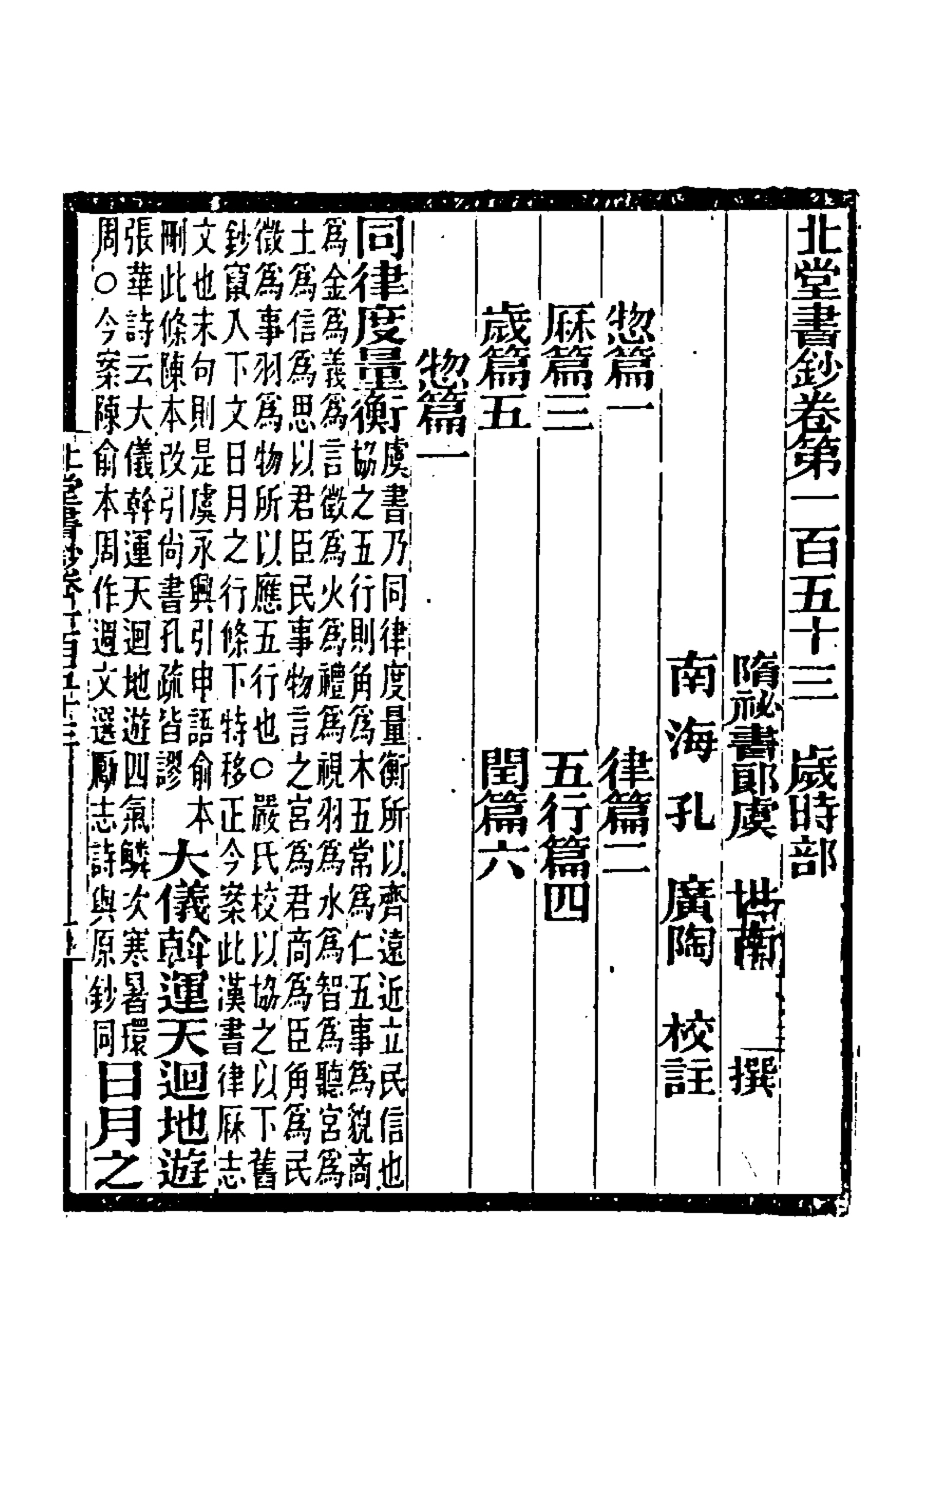 北堂書鈔卷第一百五十三 歲時部
隋祕書郎虞 世南 撰
南海孔 廣陶 校註
惣篇一 律篇二
厤篇三 五行篇四
歲篇五 閏篇六
惣篇一
同律度量衡
虞書乃同律度量衡所以齊遠近立民信也
協之五行則角爲木五常爲仁五事爲貌商
爲金爲義爲言徵爲火爲禮爲視羽爲水爲智爲聽宮爲
土爲信爲思以君臣民事物言之宮爲君商爲臣角爲民
徵爲事羽爲物所以應五行也○嚴氏校以協之以下舊
鈔竄入下文日月之行條下特移正今案此漢書律厤志
文也末句則是虞永興引申語俞本
刪此條陳本改引尚書孔疏皆謬
大儀斡運天迴地遊
張華詩云大儀斡運天迴地遊四氣鱗次寒暑環
周○今案陳俞本周作週文選勵志詩與原鈔同
日月之
北堂書鈔卷一百五十三